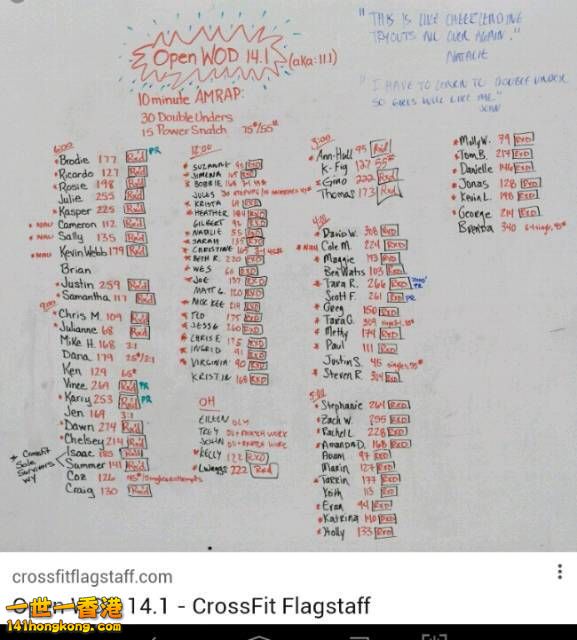 Open WOD 14.1
(aka: 11.1)
10 minute AMRAP:
30 Double Unders
15 Power Snatch 75#/55#
"THIS IS LIKE CHEERLEADING
TRYOUTS ALL OVER AGAIN."
NATALIE
"I HAVE TO LEARN TO DOUBLE UNDER
SO GIRLS WILL LIKE ME."
JOHN
6:00
Brodie 177 Rxd PR
Ricardo 127 Rxd
Rosie 198 Rxd
Julie 255 Rxd
Kasper 225 Rxd
Cameron 112 Rxd
Sally 135 Rxd
Kevin Webb 179 Rxd
Brian
Justin 259 Rxd
Samantha 117 Rxd
9:00
Chris M. 109 Rxd
Julianne 68 Rxd
Mike H. 168 3:1
Dana 179
Ken 129 65#
Vince 269 Rxd PR
Karry 253 Rxd PR
Jen 169 3:1
Dawn 274 Rxd
Chelsey 214 Rxd
Isaac 185 Rxd
Summer 141 Rxd
Coz 126
Craig 130 Rxd
12:00
SUZANNE 91 RXD
JIMENA
BOBBIE
JULES
KRISTA
HEATHER 184 RXD
GILBERT 92 RXD
NATALIE 55
SARAH 135 RXD
CHRISTINE
BETH R. 230 RXD
WES 60 RXD
JOE 137 RXD
MATT L. 120 RXD
NICK KEE 214 RXD
TED 175 RXD
JESSE 260 RXD
CHRIS E 175 RXD
INGRID 91 RXD
VIRGINIA 90 RXD
KRISTIN 168 RXD
OH
EILEEN OLY
TREY
JOHN
KELLY 122 RXD
222 Rxd
3:00
Ann-Holl 95 Rxd
K-Fig 127 55#
Gino 222 Rxd
Thomas 173 Rxd
4:00
David W. 308 RXD
Cole M. 224 RXD
Maggie 193 RXD
Ben Watts 103 RXD
Tara R. 266 RXD PR
Scott F. 261 RXD PR
Greg 150 RXD
Tara G. 309
Metty 174 RXD
Paul 111 RXD
Justin S. 45
Steven R. 304 RXD
5:00
Stephanie 264 RXD
Zach W. 255 RXD
Rachel L. 228 RXD
Amanda D. 168 RXD
Adam 97 RXD
Marin 127 RXD
Tarrin 177 RXD
Keith 113 RXD
Evan 94 RXD
Katrina 140 RXD
Holly 133 RXD
Molly W. 79 RXD
Tom B. 217 RXD
Danielle 146 RXD
Jonas 128 RXD
Kevin L. 198 RXD
George 214 RXD
Brenda 340
crossfitflagstaff.com
14.1 - CrossFit Flagstaff
一世一香港
141hongkong.com